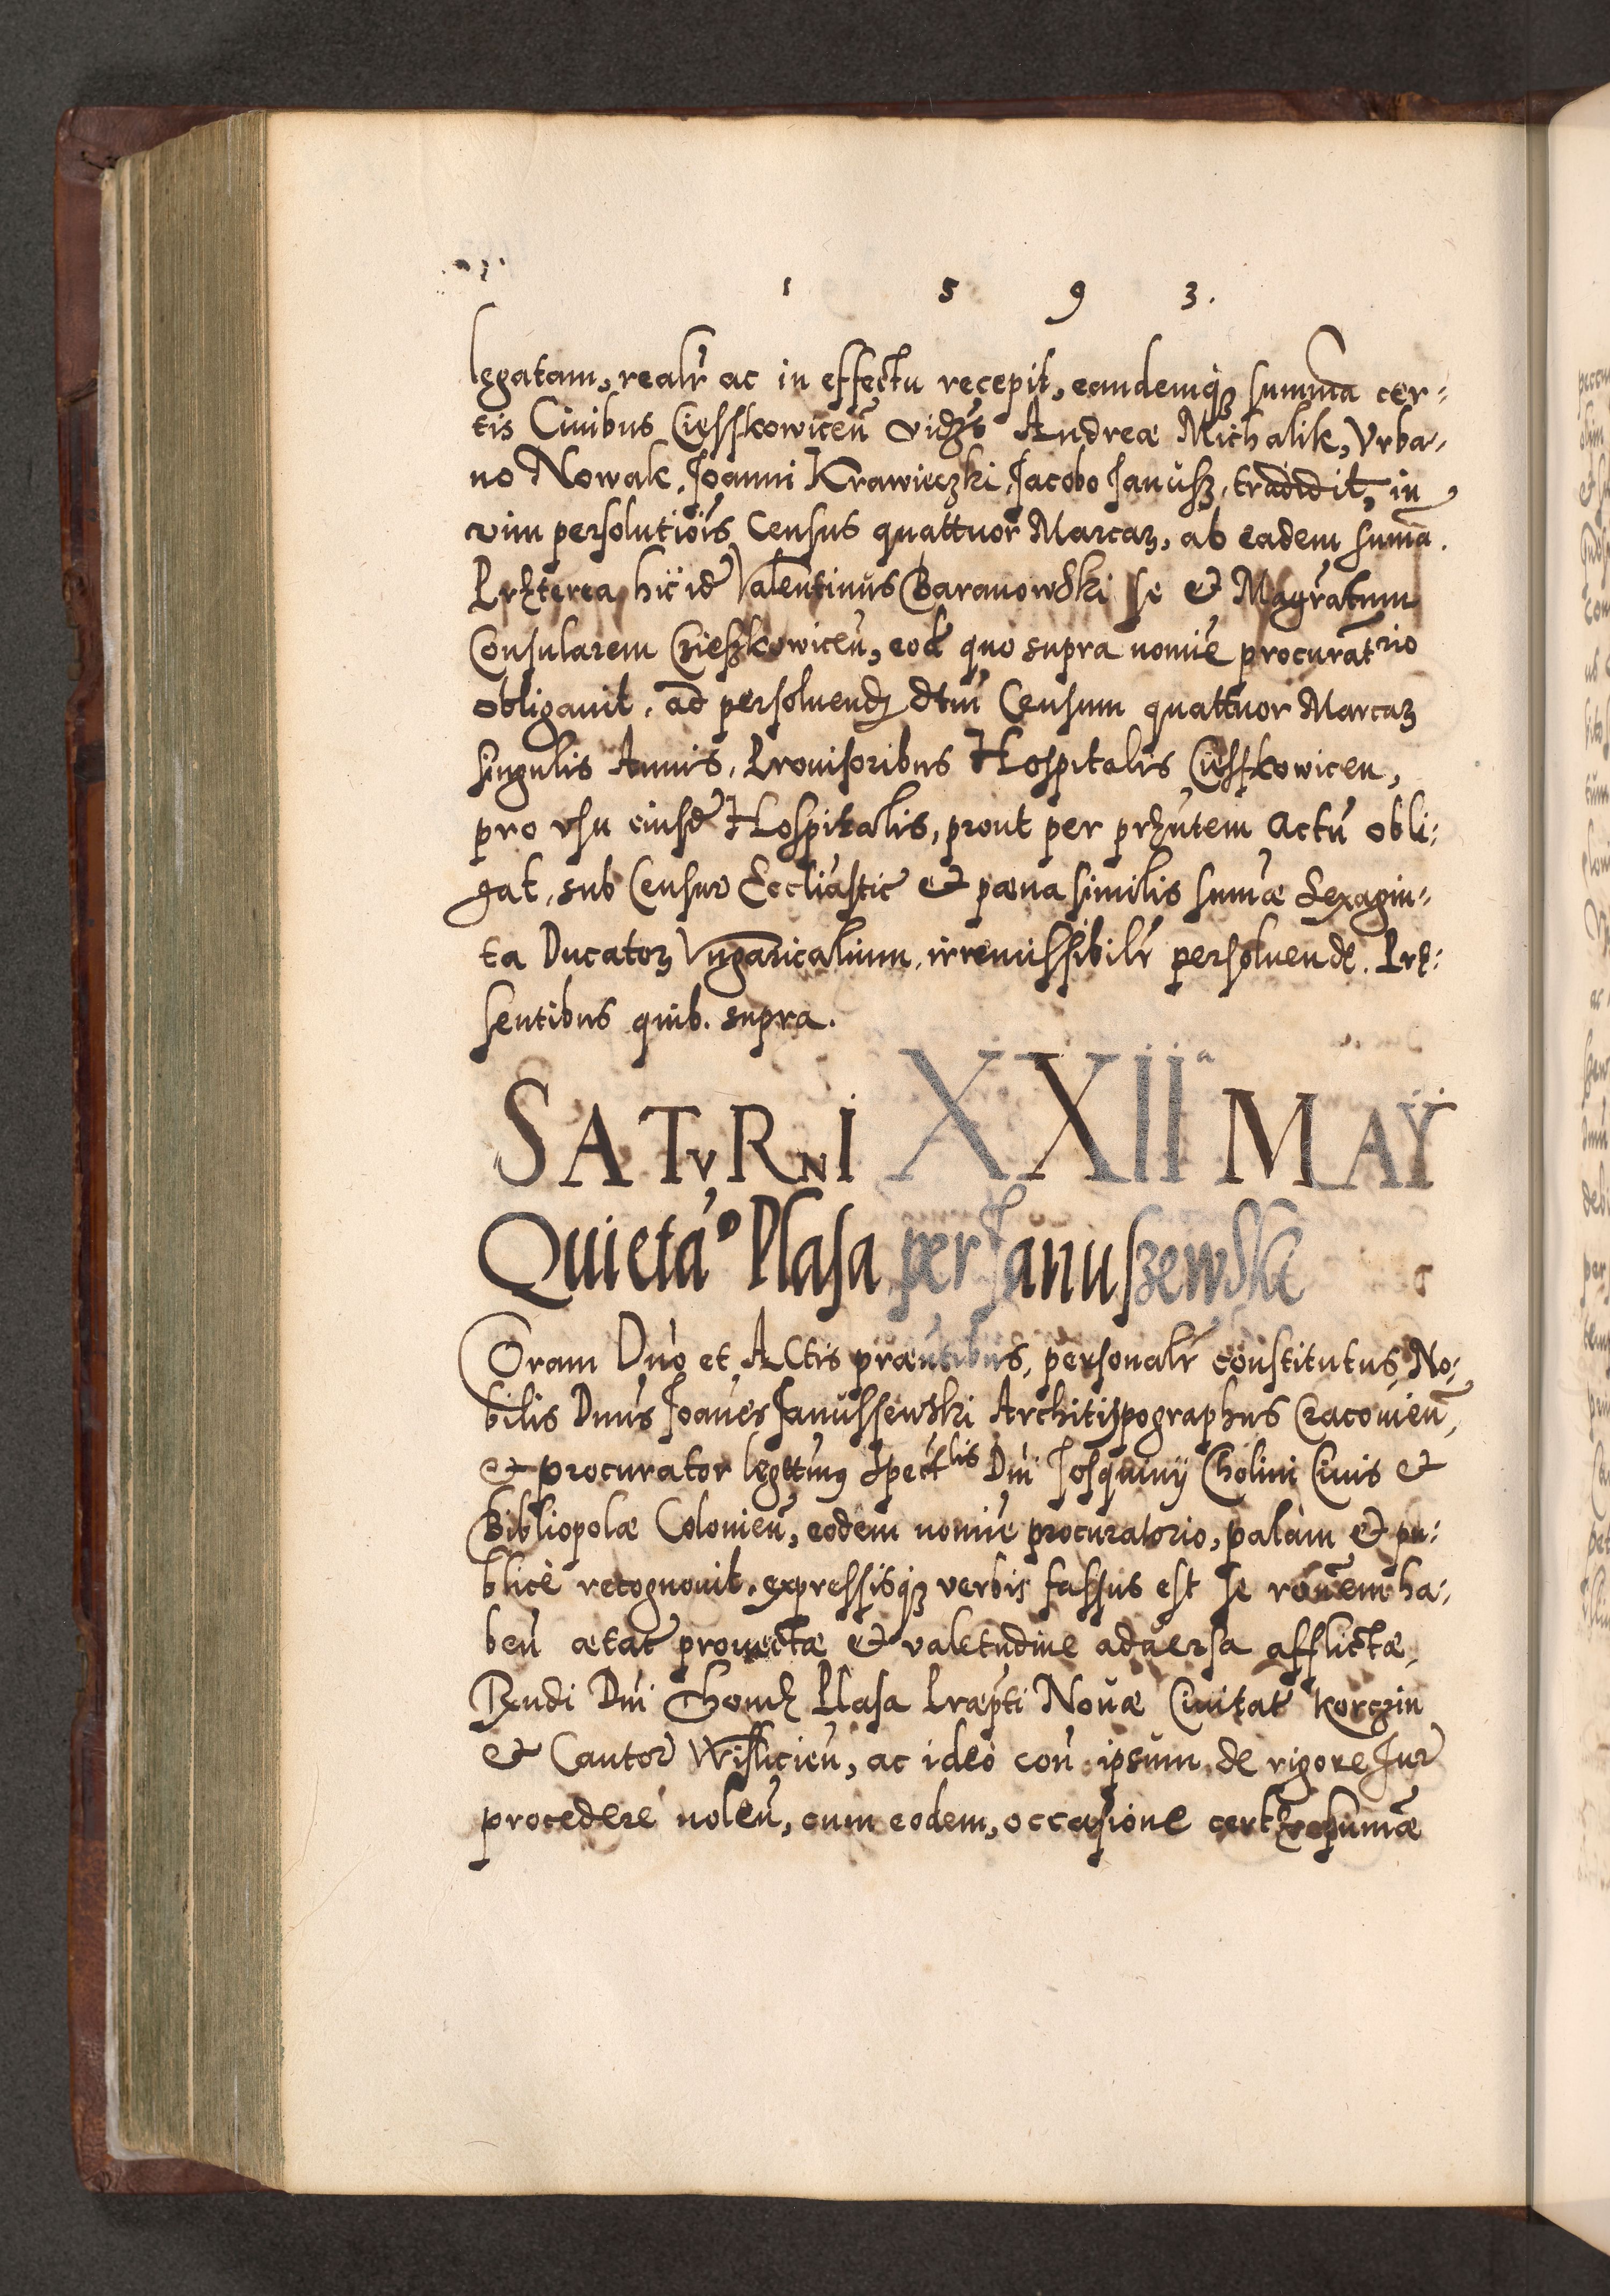 1 5 9 3.
legatam, realr ac in effectu recepit, eamdemq₃ summa cer-
tis Ciuibus Ciesskowiceñ vidz Andreæ Michalik, Vrba-
no Nowak, Joanni Krawieczki, Jacobo Janusz, tradidit, in
vim persolutiõis Census quattuor Marcaꝝ, ab eadem suma.
Pręterea hic idẽ Valentinus Baranowski se et Magratum
Consularem Czieszkowiceñ, eod quo supra nomie procuratrio
obligauit, ad persoluend dtm Censum quattuor Marcaꝝ
singulis Annis, Prouisoribus Hospitalis Ciesskowicen,
pro vsu eiusd Hospitalis, prout per pręntem Actũ obli-
gat, sub Censur Eccliastic et pæna similis sumæ Sexagin-
ta Ducatoꝝ Vngaricalium, irremissibilr persoluendę. Prę-
sentibus quib. supra.
SATVRNI XXIIᵃ MAŸ
Quietaõ Plasa per Januszewski
Coram Dno et Actis præntibus, personalr constitutus, No-
bilis Dnus Joanes Janussewski Architypographus Cracouieñ,
et procurator legttimꝰ Spectlis Dni Josquinÿ Cholini Ciuis et
Bibliopolæ Colonieñ, eodem nomine procuratorio, palàm et pu-
blicè recognouit, expressisq₃ verbis fassus est se rõnem ha-
beñ ætat prouectæ et valetudine aduersa afflictæ,
Rzndi Dni Thomę Plasa Præpti Nouæ Ciuitat Korczin
et Cantor Wislicieñ, ac ideo con ipsum, de rigore Jur
procedere noleñ, cum eodem, occasione certę sumæ